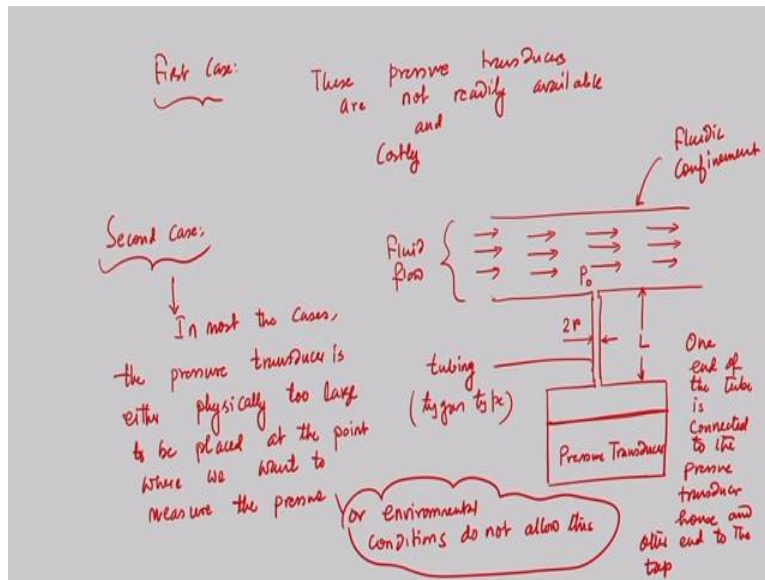 First Case:
These pressure transducers
are not readily available
and
Costly
Fluidic
Confinement
Second Case:
Fluid
flow
P₀
2r
L
tubing
(tygon type)
Pressure Transducer
In most the cases,
the pressure transducer is
either physically too large
to be placed at the point
where we want to
measure the pressure
or environmental
conditions do not allow this
One
end of
the tube
is
connected
to the
pressure
transducer
house and
other end to the
tap